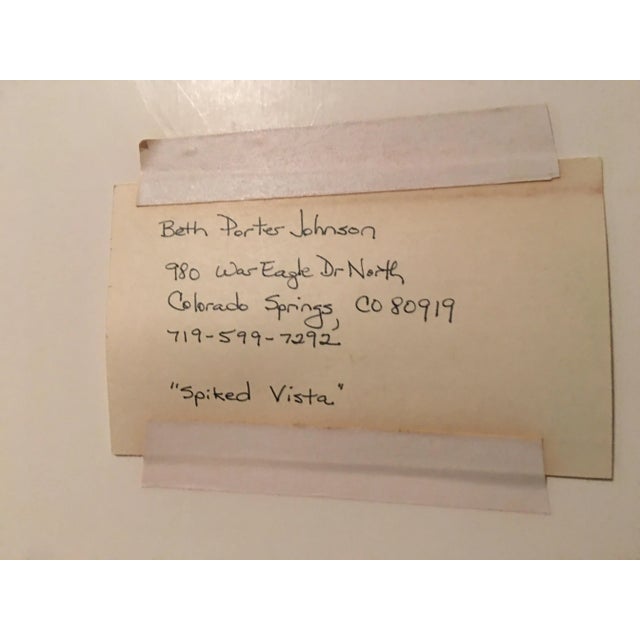 Beth Porter Johnson
980 War Eagle Dr North
Colorado Springs, CO 80919
719-599-7292
"Spiked Vista"